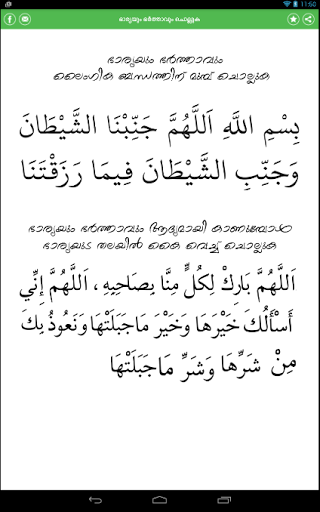 11:50
ഭാര്യയും ഭർത്താവും ചൊല്ലുക
ഭാര്യയും ഭർത്താവും
ലൈംഗിക ബന്ധത്തിന് മുമ്പ് ചൊല്ലുക
بِسْمِ اللَّهِ اَللَّهُمَّ جَنِّبْنَا الشَّيْطَانَ
وَجَنِّبِ الشَّيْطَانَ فِيمَا رَزَقْتَنَا
ഭാര്യയും ഭർത്താവും ആദ്യമായി കാണുമ്പോൾ
ഭാര്യയുടെ തലയിൽ കൈ വെച്ച് ചൊല്ലുക
اَللَّهُمَّ بَارِكْ لِكُلٍّ مِنَّا بِصَاحِبِهِ ، اَللَّهُمَّ إِنِّي
أَسْأَلُكَ خَيْرَهَا وَخَيْرَ مَاجَبَلَتْهَا وَنَعُوذُ بِكَ
مِنْ شَرِّهَا وَشَرِّ مَاجَبَلَتْهَا